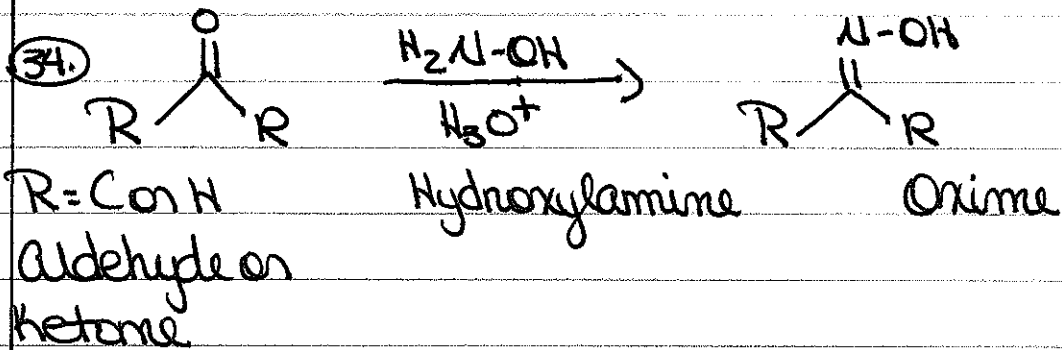 34.
O
H₂N-OH
N-OH
R
R
H₃O⁺
R
R
R=C or H
Hydroxylamine
Oxime
aldehyde or
ketone